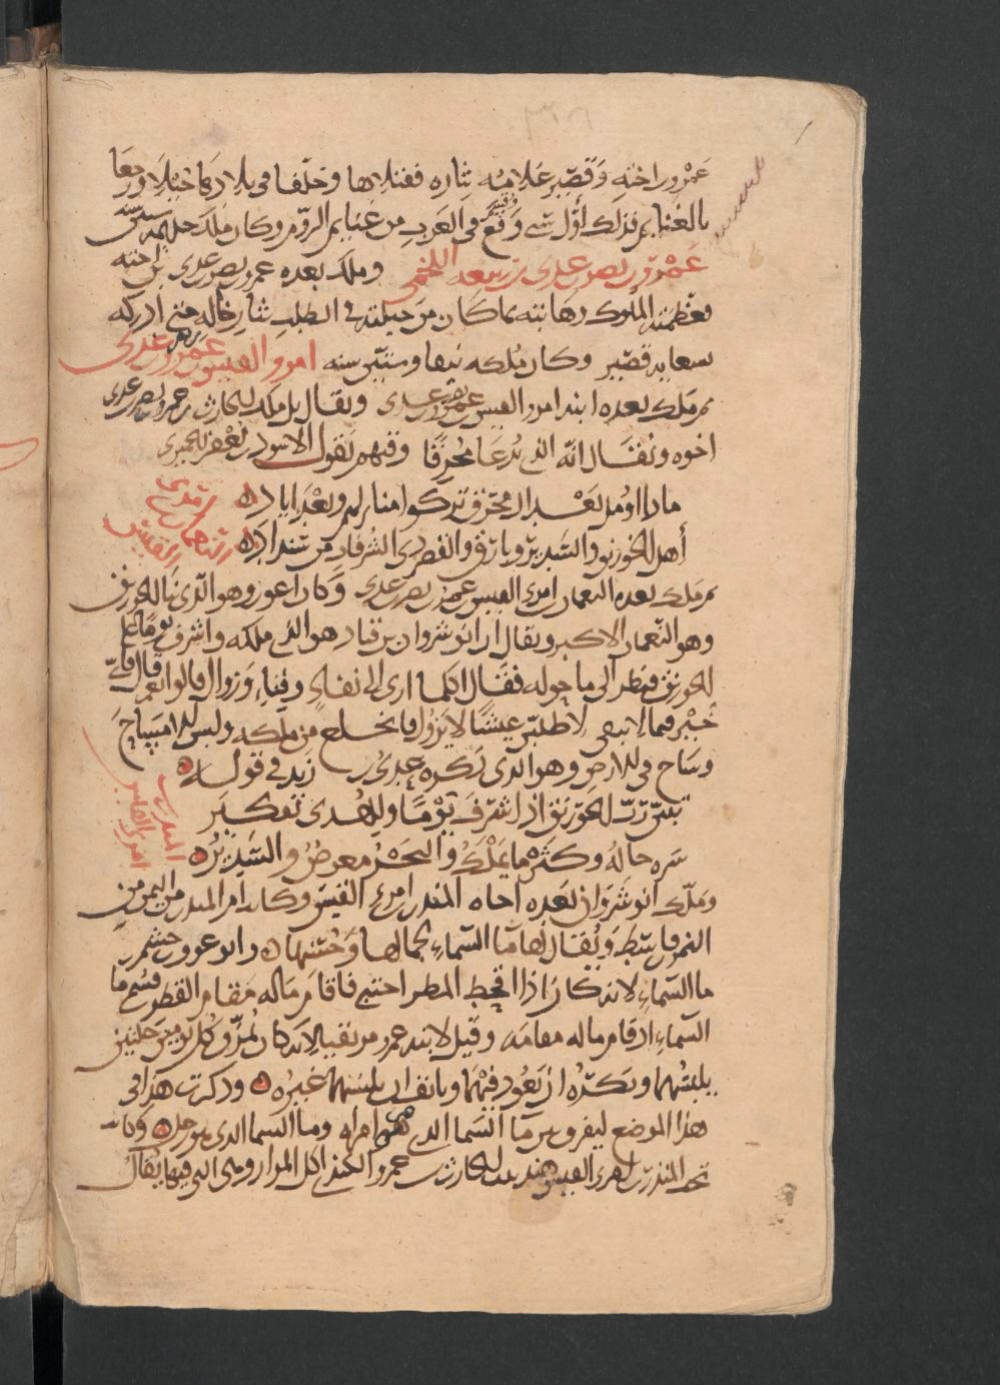 عمرو بن اخته وقصير غلامه بثاره فقتلاها وخلفا في بلادها خيلا ورجعا
بالغنايم فذلك اول شي وقع في العرب من غنايم الروم وكان ملك جذيمه ستين
عمرو بن نصر بن عدي بن ربيعه اللخمي وملك بعده عمرو بن عدي بن اخته
فعظمته الملوك وهابته بما كان من حيلته في الطلب بثار خاله حتى ادركه
بسعايه قصير وكان ملكه نيفا وستين سنه امرو القيس بن عمرو بن عدي
ثم ملك بعده ابنه امرو القيس بن عمرو بن عدي ويقال بل ملك الحارث بن عمرو بن عدي
اخوه ويقال انه الذي يدعا محرقا وفيهم يقول الاسود بن يعفر
ماذا اؤمل بعد ال محرق تركوا منازلهم وبعد اياد
أهل الخورنق والسدير وبارق والقصر ذي الشرفات من سنداد
ثم ملك بعده النعمان بن امرئ القيس بن عمرو بن عدي وكان اعور وهو الذي بنا الخورنق
وهو النعمان الاكبر ويقال ان انوشروان بن قباد هو الذي ملكه واشرف يوما على
الخورنق فنظر الى ما حوله فقال اكلما ارى الى نفاد وفناء وزوال قالوا نعم قال فاي
خير فيما لا يبقى لاطلبن عيشا لا يزول فانخلع من ملكه ولبس الامساح
وساح في الارض وهو الذي ذكره عدي بن زيد في قوله
تبين رب الخورنق اذ اشرف يوما وللهدى تفكير
سره حاله وكثرة ما يملك والبحر معرض والسدير
وملك انوشروان بعده اخاه المنذر بن امرئ القيس وكانت ام المنذر من اليمن من
النمر بن قاسط ويقال لها ما السماء لجمالها وحسنها
ما السماء لانه كان اذا اقحط المطر احتبى فاقام ماله مقام القطر فسمي ما
السماء اذ اقام ماله مقامه وقيل لابنه عمرو مزيقيا لانه كان يمزق كل يوم حلتين
يلبسهما ويكره ان يعود فيهما ويانف ان يلبسهما غيره وذكرت هذا في
هذا الموضع ليفرق بين ما السما التي هي امراه وما السما الذي هو رجل وكانت
تحت المنذر بن امرئ القيس هند بنت الحارث بن عمرو الكندي اكل المرار وهي التي فيها يقال